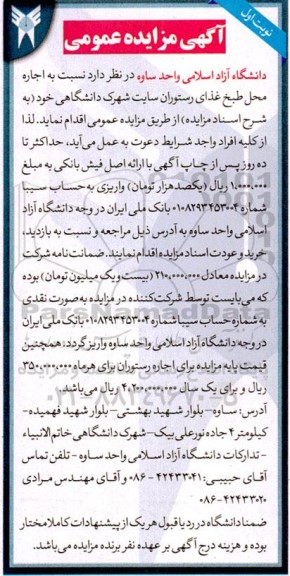 نوبت اول
آگهی مزایده عمومی
دانشگاه آزاد اسلامی واحد ساوه در نظر دارد نسبت به اجاره
محل طبخ غذای رستوران سایت شهرک دانشگاهی خود (به
شرح اسناد مزایده) از طریق مزایده عمومی اقدام نماید. لذا
از کلیه افراد واجد شرایط دعوت به عمل می‌آید، حداکثر تا
ده روز پس از چاپ آگهی با ارائه اصل فیش بانکی به مبلغ
۱,۰۰۰,۰۰۰ ریال (یکصد هزار تومان) واریزی به حساب سیبا
شماره ۰۱۰۸۲۹۳۴۵۳۰۰۴ بانک ملی ایران در وجه دانشگاه آزاد
اسلامی واحد ساوه به آدرس ذیل مراجعه و نسبت به بازدید،
خرید و عودت اسناد مزایده اقدام نمایند. ضمانت نامه شرکت
در مزایده معادل ۲۱۰,۰۰۰,۰۰۰ (بیست و یک میلیون تومان) بوده
که می‌بایست توسط شرکت‌کننده در مزایده به صورت نقدی
به شماره حساب سیبا شماره ۰۱۰۸۲۹۳۴۵۳۰۰۴ بانک ملی ایران
در وجه دانشگاه آزاد اسلامی واحد ساوه واریز گردد. همچنین
قیمت پایه مزایده برای اجاره رستوران برای هر ماه ۳۵۰,۰۰۰,۰۰۰
ریال و برای یک سال ۴,۲۰۰,۰۰۰,۰۰۰ ریال می‌باشد.
آدرس: ساوه- بلوار شهید بهشتی- بلوار شهید فهمیده-
کیلومتر ۴ جاده نورعلی بیک- شهرک دانشگاهی خاتم الانبیاء
- تدارکات دانشگاه آزاد اسلامی واحد ساوه - تلفن تماس
آقای حبیبی: ۴۲۴۳۳۰۴۱-۰۸۶ و آقای مهندس مرادی
۴۲۴۳۳۰۲۰-۰۸۶
ضمنا دانشگاه در رد یا قبول هر یک از پیشنهادات کاملا مختار
بوده و هزینه درج آگهی بر عهده نفر برنده مزایده می‌باشد.